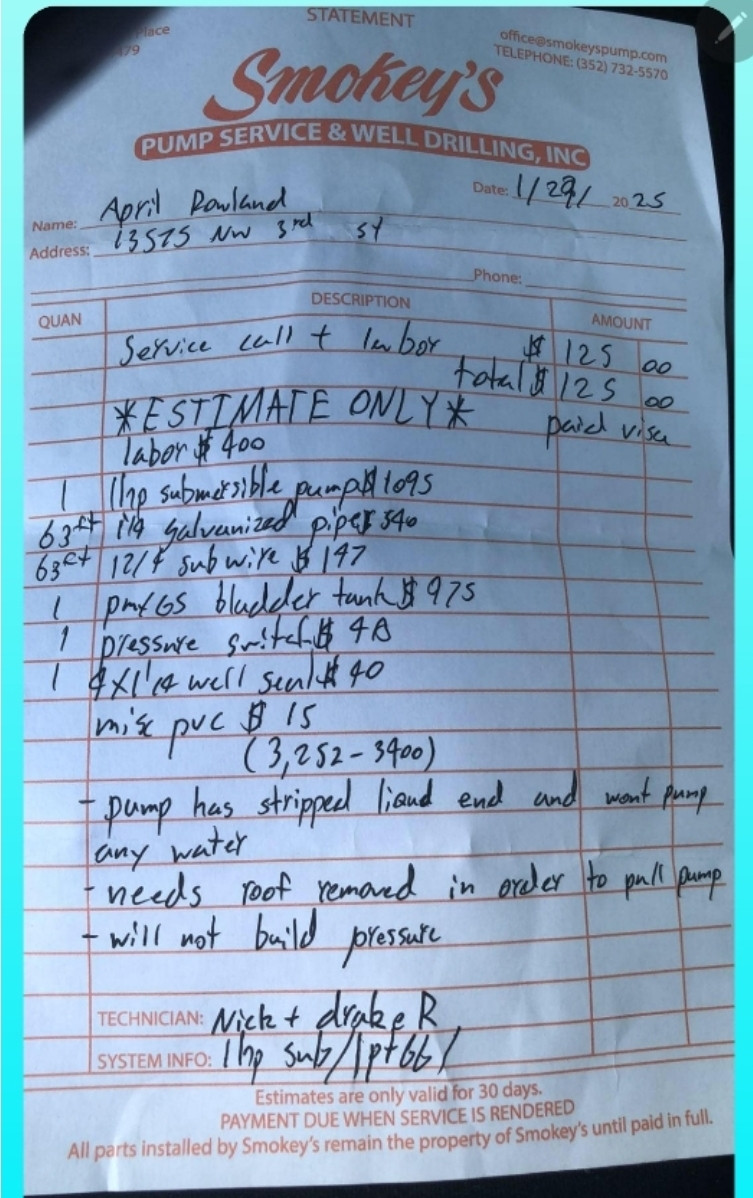 STATEMENT
Place
479
office@smokeyspump.com
TELEPHONE: (352) 732-5570
Smokey's
PUMP SERVICE & WELL DRILLING, INC
Date: 1/29/ 2025
Name: April Rowland
Address: 13575 NW 3rd st
Phone:
QUAN DESCRIPTION AMOUNT
Service call + labor $ 125 00
total $ 125 00
*ESTIMATE ONLY* paid visa
labor $ 400
1 1hp submersible pump $ 1095
63ft 1 1/4 galvanized pipe $ 540
63ft 12/4 sub wire $ 147
1 bladder tank $ 975
1 pressure switch $ 48
1 4X1 1/4 well seal $ 40
misc pvc $ 15
(3,252-3400)
- pump has stripped liqud end and wont pump
any water
- needs roof removed in order to pull pump
- will not build pressure
TECHNICIAN: Nick + drake R
SYSTEM INFO: 1hp sub/
Estimates are only valid for 30 days.
PAYMENT DUE WHEN SERVICE IS RENDERED
All parts installed by Smokey's remain the property of Smokey's until paid in full.